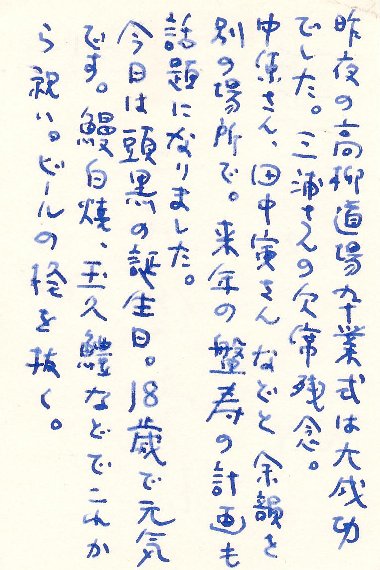 昨夜の高柳道場卆業式は大成功
でした。三浦さんの欠席残念。
中原さん、田中寅さんなどと余韻を
別の場所で。来年の盤寿の計画も
話題になりました。
今日は頭黒の誕生日。18歳で元気
です。鰻白焼、玉久鱧などでこれか
ら祝い。ビールの栓を抜く。